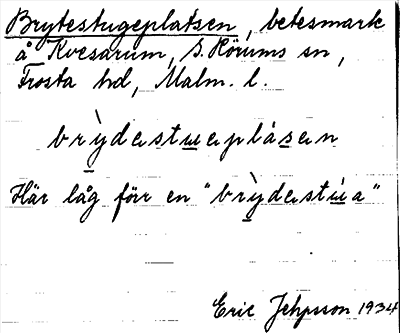 Brytestugeplatsen, betesmark
å Kvesarum, S. Rörums sn,
Frosta hd, Malm. l.
brỳdestueplásen
Här låg förr en "brỳdestùa"
Eric Jepsson 1934